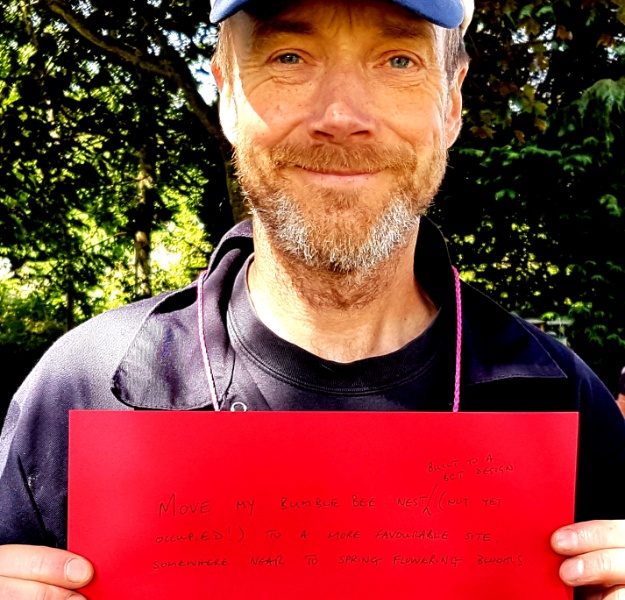 BUILT TO A
BCT DESIGN
MOVE MY BUMBLE BEE NEST (NOT YET
OCCUPIED!) TO A MORE FAVOURABLE SITE
SOMEWHERE NEAR TO SPRING FLOWERING BLOOMS